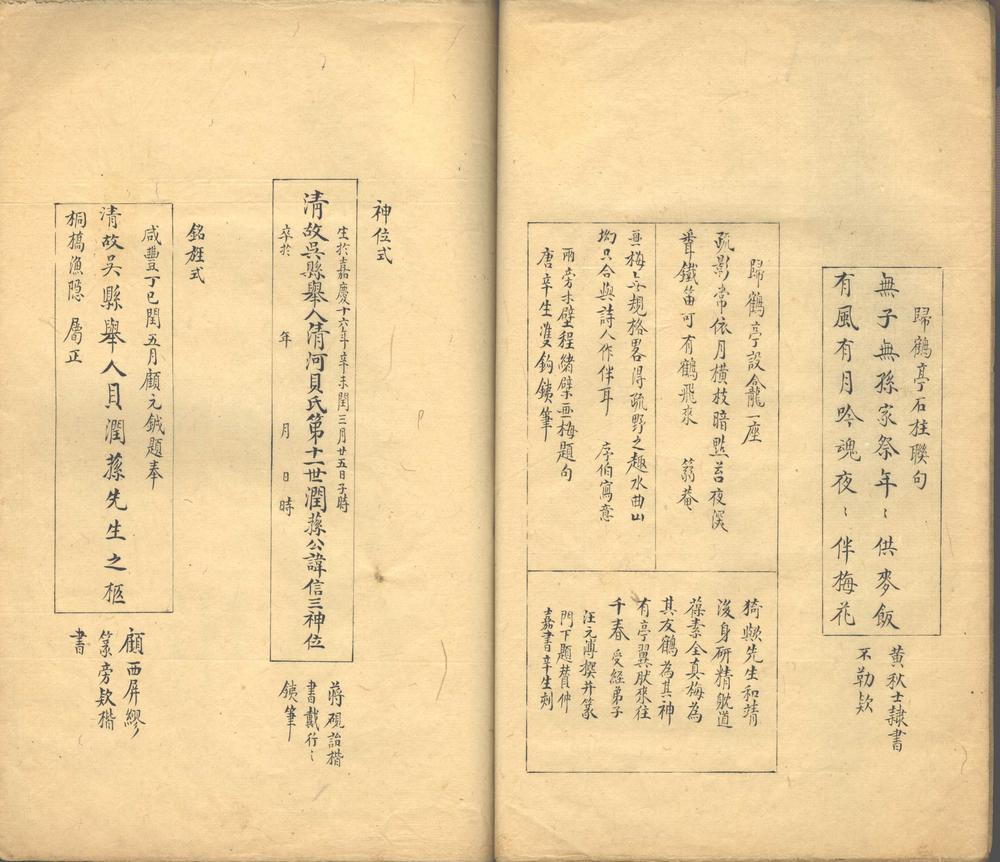 歸鶴亭石柱聯句
無子無孫家祭年〻供麥飯
有風有月吟魂夜〻伴梅花
黄秋士隸書
不勒欵
歸鶴亭設龕一座
疏影常依月橫枝暗點苔夜深
聲鐵笛可有鶴飛來　翁菴
無規格畧得疏野之趣水曲山
坳只合與詩人作伴耳　序伯寫意
兩旁木壁程緒檗畫梅題句
唐辛生雙鈎鐵筆
猗歟先生和靖
後身研精躭道
葆素全真梅為
其友鶴為其神
有亭翼肰來往
千春　受經弟子
汪元溥撰并篆
門下題贊仲
嘉書辛生刻
神位式
生於嘉慶十六年辛未閏三月廿五日子時
清故吳縣舉人清河貝氏第十一世潤蓀公諱信三神位
卒於　年　月　日　時
蔣硯詒楷
書戴行〻
鐵筆
銘旌式
咸豐丁巳閏五月顧元鉞題奉
清故吳縣舉人貝潤蓀先生之柩
桐橋漁隱　屬正
顧西屏繆
篆旁欵楷
書